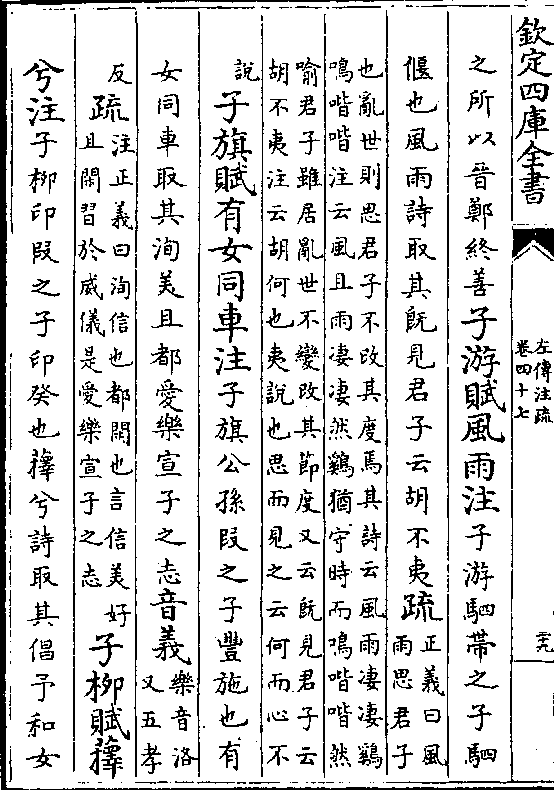 欽定四庫全書
左傳注疏
卷四十七
二十九
之所以晉鄭終善子游賦風雨注子游駟帶之子駟
偃也風雨詩取其既見君子云胡不夷疏正義曰風
雨思君子
也亂世則思君子不改其度焉其詩云風雨凄凄鷄
鳴喈喈注云風且雨凄凄然鷄猶守時而鳴喈喈然
喻君子雖居亂世不變改其節度又云既見君子云
胡不夷注云胡何也夷說也思而見之云何而心不
說子旗賦有女同車注子旗公孫段之子豐施也有
女同車取其洵美且都愛樂宣子之志音義樂音洛
又五孝
反疏注正義曰洵信也都閑也言信美好
且閑習於威儀是愛樂宣子之志子柳賦蘀
兮注子柳印段之子印癸也蘀兮詩取其倡予和女